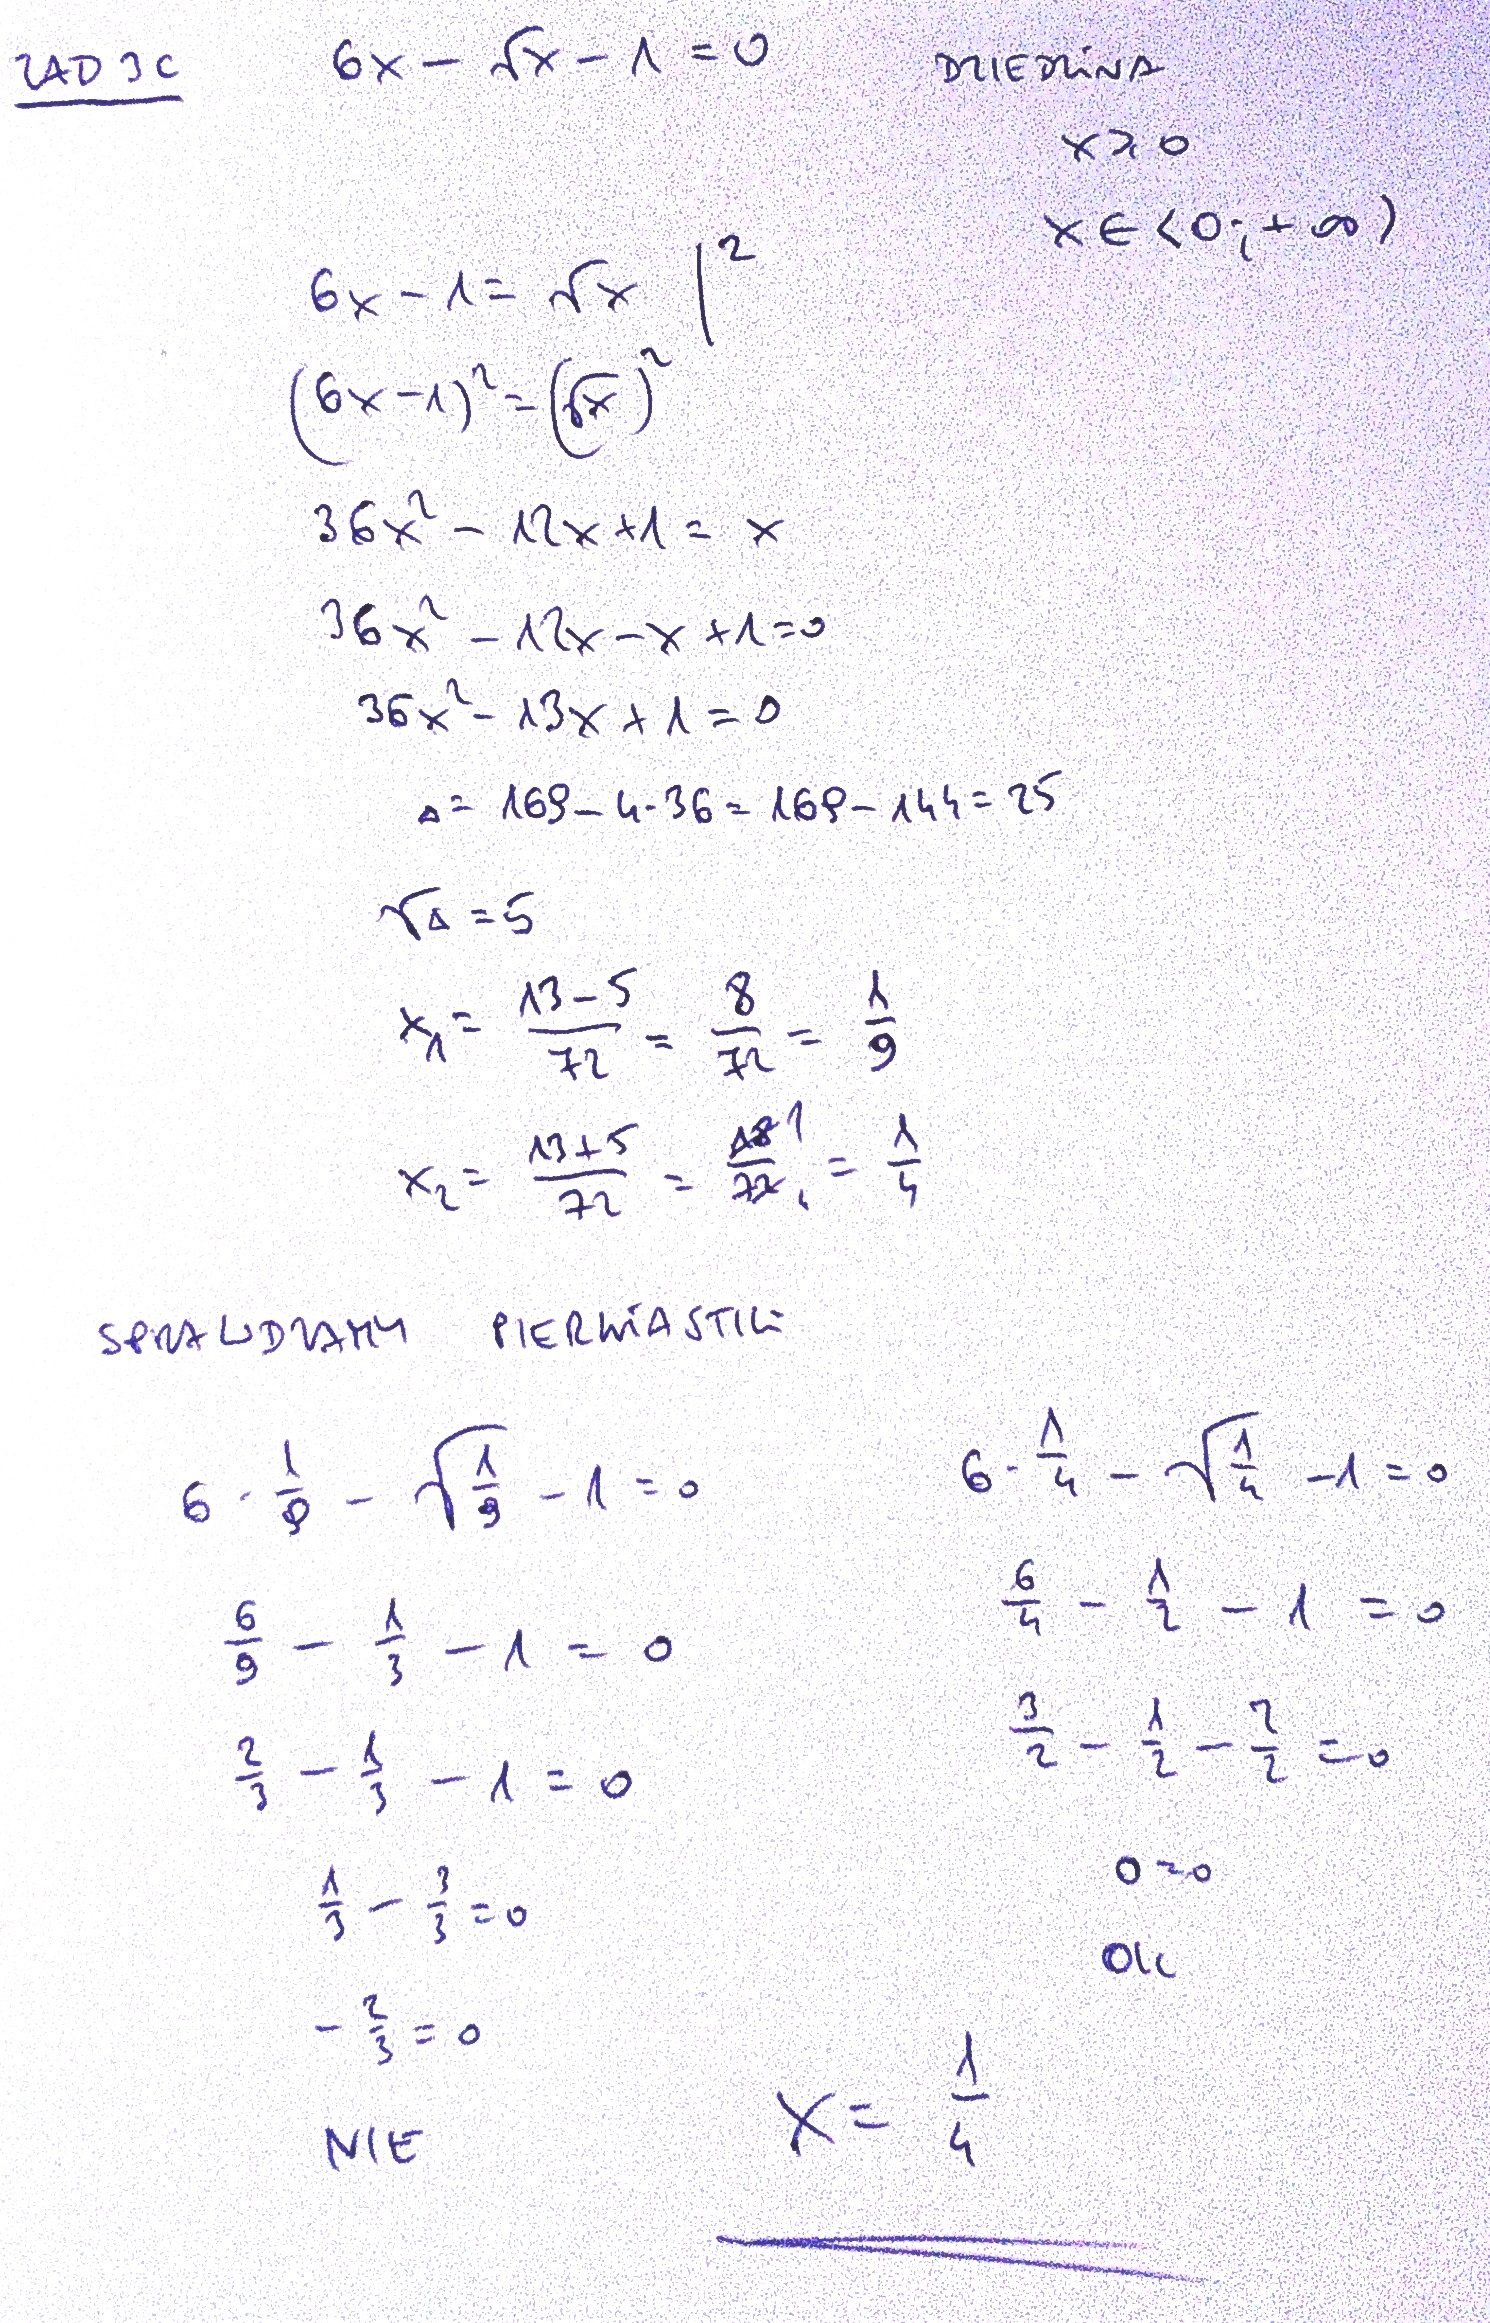 ZAD 3C 6x - √x - 1 = 0 DZIEDZINA
x ≥ 0
x ∈ <0; +∞)
6x - 1 = √x |²
(6x-1)² = (√x)²
36x² - 12x + 1 = x
36x² - 12x - x + 1 = 0
36x² - 13x + 1 = 0
Δ = 169 - 4·36 = 169 - 144 = 25
√Δ = 5
x₁ = (13-5)/72 = 8/72 = 1/9
x₂ = (13+5)/72 = 18/72 = 1/4
SPRAWDZAMY PIERWIASTKI
6 · 1/9 - √(1/9) - 1 = 0
6/9 - 1/3 - 1 = 0
2/3 - 1/3 - 1 = 0
1/3 - 3/3 = 0
-2/3 = 0
NIE
6 · 1/4 - √(1/4) - 1 = 0
6/4 - 1/2 - 1 = 0
3/2 - 1/2 - 2/2 = 0
0 = 0
OK
x = 1/4